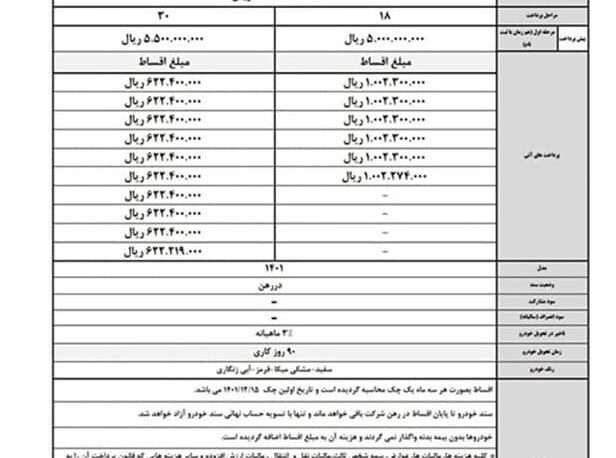 مراحل پرداخت ۱۸ ۳۰
پیش پرداخت مرحله اول (هم زمان با ثبت نام) ۵.۰۰۰.۰۰۰.۰۰۰ ریال ۵.۵۰۰.۰۰۰.۰۰۰ ریال
مبلغ اقساط مبلغ اقساط
پرداخت های آتی
۱.۰۰۲.۳۰۰.۰۰۰ ریال ۶۲۲.۴۰۰.۰۰۰ ریال
۱.۰۰۲.۳۰۰.۰۰۰ ریال ۶۲۲.۴۰۰.۰۰۰ ریال
۱.۰۰۲.۳۰۰.۰۰۰ ریال ۶۲۲.۴۰۰.۰۰۰ ریال
۱.۰۰۲.۳۰۰.۰۰۰ ریال ۶۲۲.۴۰۰.۰۰۰ ریال
۱.۰۰۲.۳۰۰.۰۰۰ ریال ۶۲۲.۴۰۰.۰۰۰ ریال
۱.۰۰۲.۲۷۴.۰۰۰ ریال ۶۲۲.۴۰۰.۰۰۰ ریال
- ۶۲۲.۴۰۰.۰۰۰ ریال
- ۶۲۲.۴۰۰.۰۰۰ ریال
- ۶۲۲.۴۰۰.۰۰۰ ریال
- ۶۲۲.۲۱۹.۰۰۰ ریال
مدل ۱۴۰۱
وضعیت سند دررهن
سود مشارکت -
سود انصراف (سالیانه) -
تاخیر در تحویل خودرو ۳٪ ماهیانه
زمان تحویل خودرو ۹۰ روز کاری
رنگ خودرو سفید-مشکی میکا-قرمز-آبی زنگاری
اقساط بصورت هر سه ماه یک چک محاسبه گردیده است و تاریخ اولین چک ۱۴۰۱/۱۲/۱۵ می باشد.
سند خودرو تا پایان اقساط در رهن شرکت باقی خواهد ماند و تنها با تسویه حساب نهائی سند خودرو آزاد خواهد شد.
خودروها بدون بیمه بدنه واگذار نمی گردند و هزینه آن به مبلغ اقساط اضافه گردیده است.
* کلیه هزینه ها، مالیات ها، عوارض، بیمه شخص ثالث، مالیات نقل و انتقال، مالیات ارزش افزوده و سایر هزینه هایی که قانون پرداخت آن را به